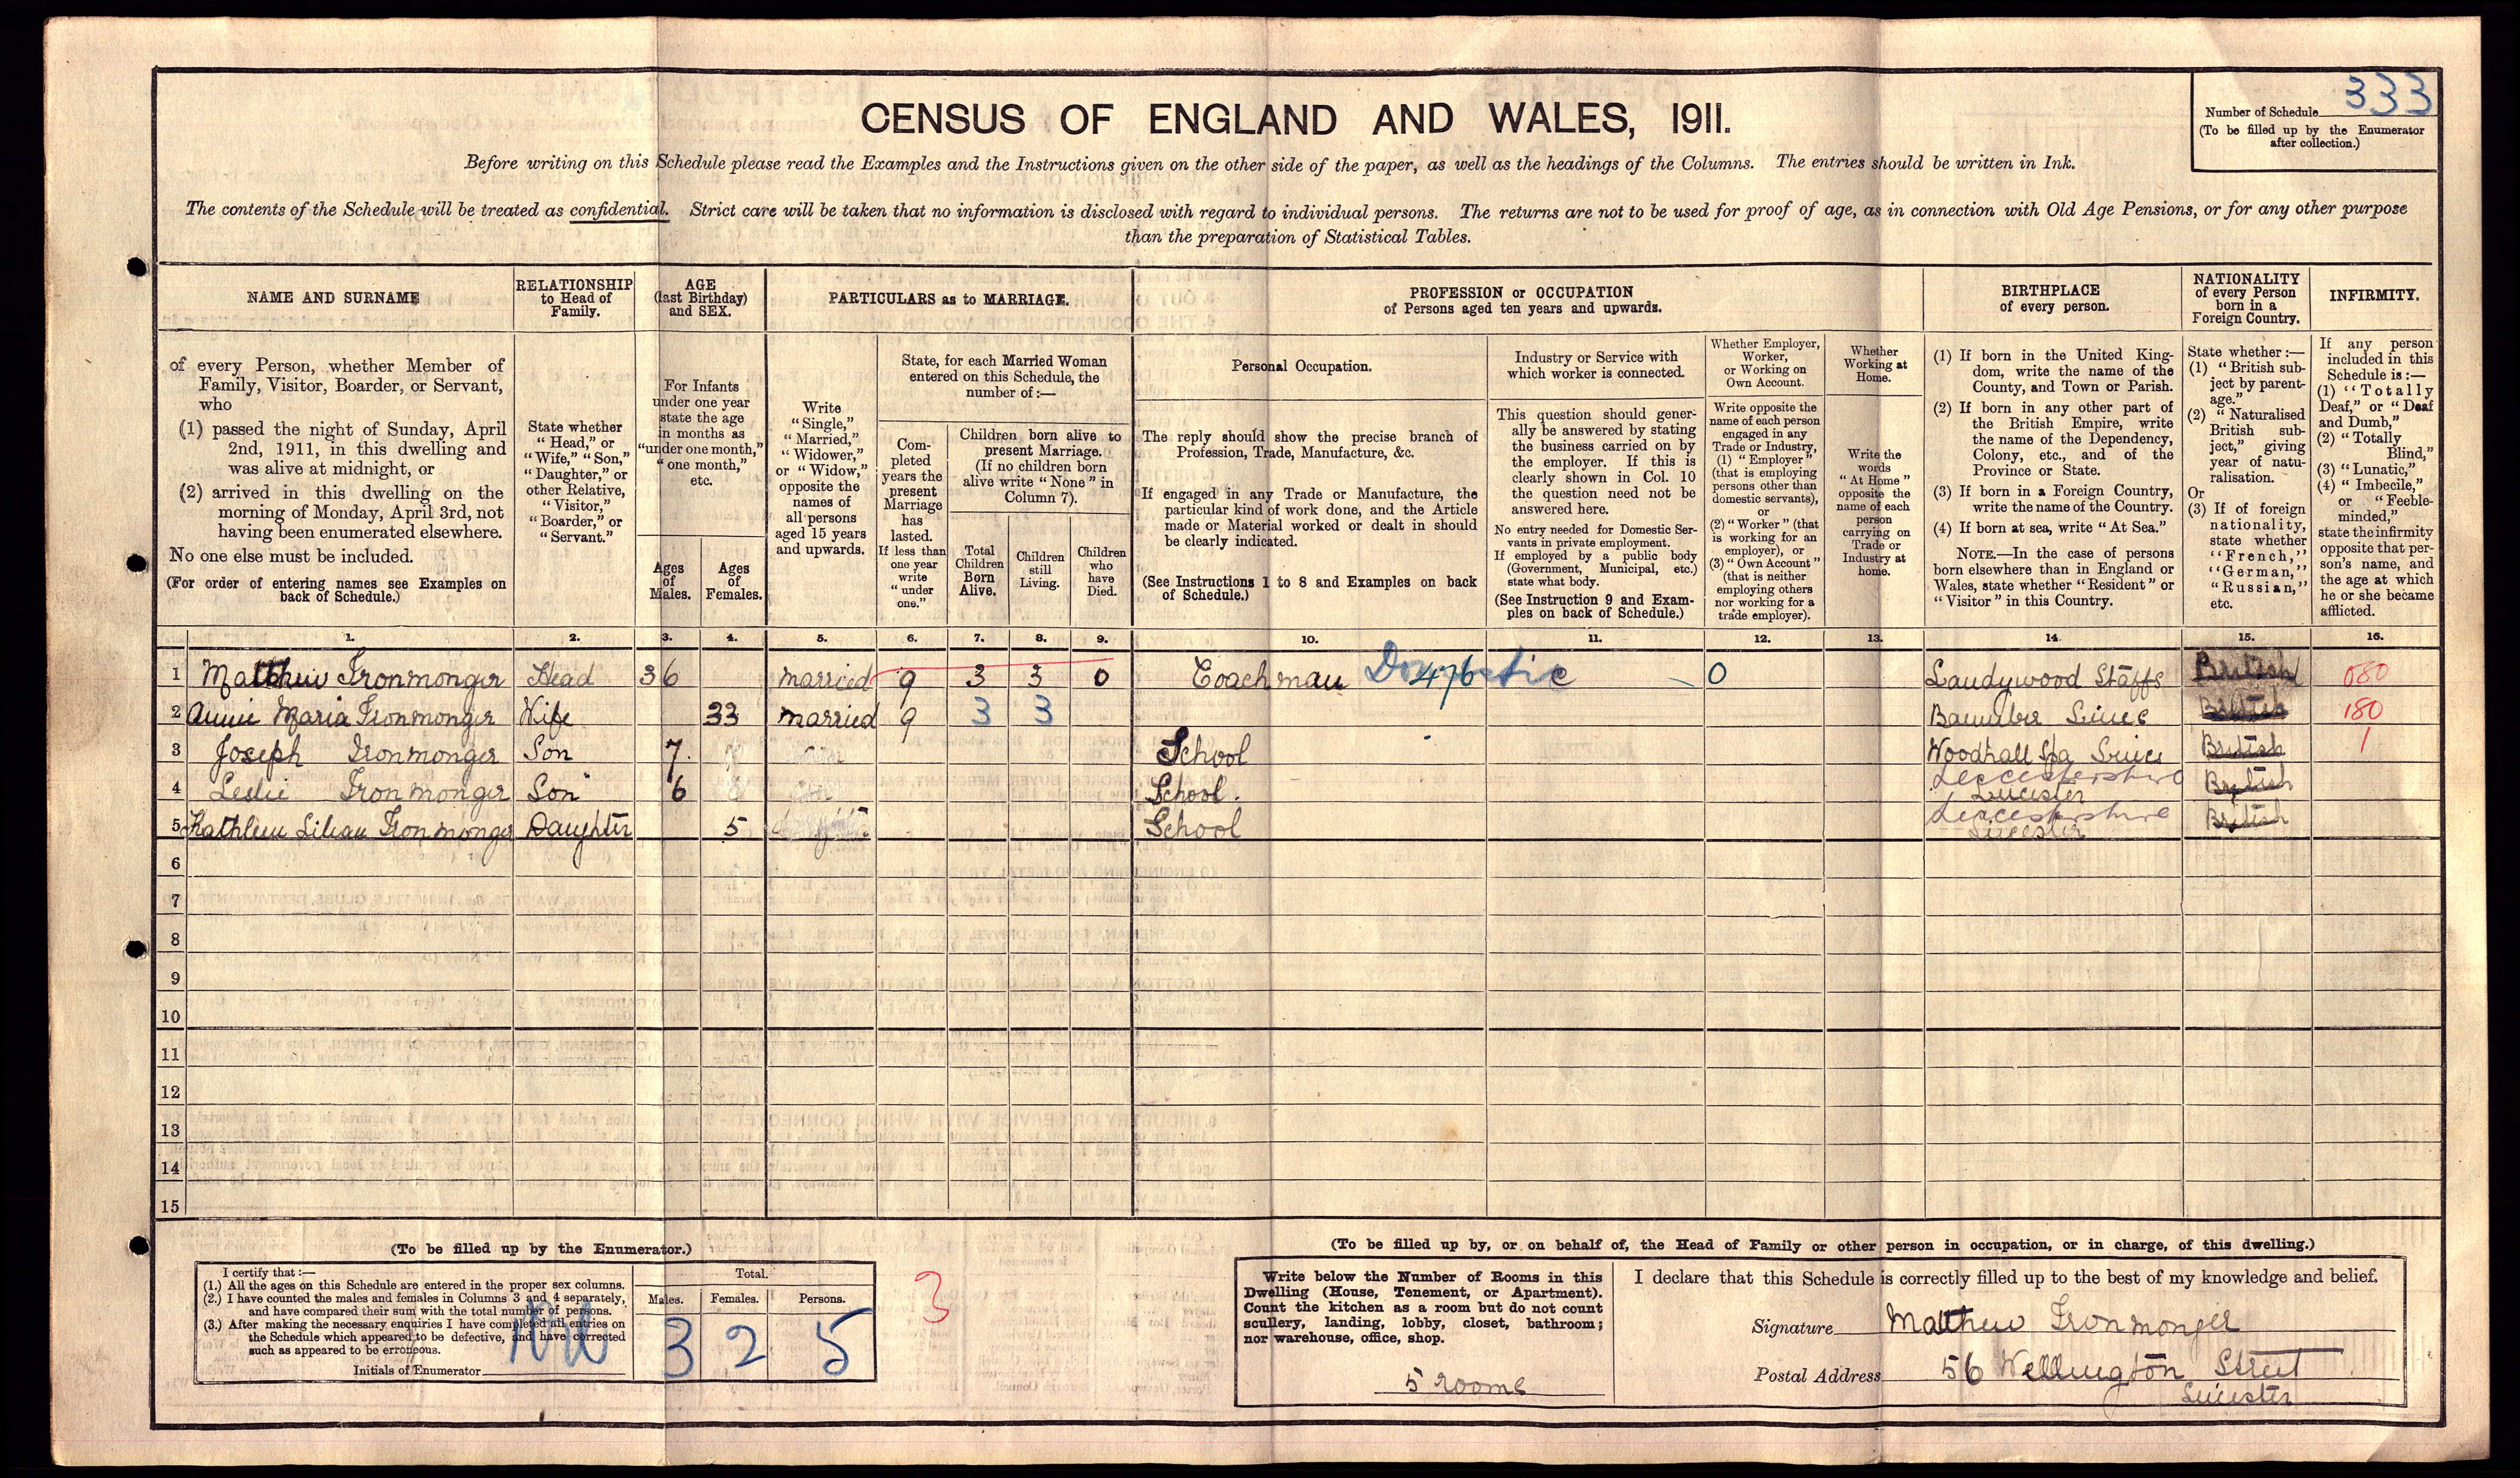 333
Number of Schedule
(To be filled up by the Enumerator
after collection.)
CENSUS OF ENGLAND AND WALES, 1911.
Before writing on this Schedule please read the Examples and the Instructions given on the other side of the paper, as well as the headings of the Columns. The entries should be written in Ink.
The contents of the Schedule will be treated as confidential. Strict care will be taken that no information is disclosed with regard to individual persons. The returns are not to be used for proof of age, as in connection with Old Age Pensions, or for any other purpose
than the preparation of Statistical Tables.
NAME AND SURNAME
of every Person, whether Member of
Family, Visitor, Boarder, or Servant,
who
(1) passed the night of Sunday, April
2nd, 1911, in this dwelling and
was alive at midnight, or
(2) arrived in this dwelling on the
morning of Monday, April 3rd, not
having been enumerated elsewhere.
No one else must be included.
(For order of entering names see Examples on
back of Schedule.)
RELATIONSHIP
to Head of
Family.
State whether
"Head," or
"Wife," "Son,"
"Daughter," or
other Relative,
"Visitor,"
"Boarder," or
"Servant."
AGE
(last Birthday)
and SEX.
For Infants
under one year
state the age
in months as
"under one month,"
"one month,"
etc.
Ages
of
Males.
Ages
of
Females.
PARTICULARS as to MARRIAGE.
Write
"Single,"
"Married,"
"Widower,"
or "Widow,"
opposite the
names of
all persons
aged 15 years
and upwards.
State, for each Married Woman
entered on this Schedule, the
number of:—
Com-
pleted
years the
present
Marriage
has
lasted.
If less than
one year
write
"under
one."
Children born alive to
present Marriage.
(If no children born
alive write "None" in
Column 7).
Total
Children
Born
Alive.
Children
still
Living.
Children
who
have
Died.
PROFESSION or OCCUPATION
of Persons aged ten years and upwards.
Personal Occupation.
The reply should show the precise branch of
Profession, Trade, Manufacture, &c.
If engaged in any Trade or Manufacture, the
particular kind of work done, and the Article
made or Material worked or dealt in should
be clearly indicated.
(See Instructions 1 to 8 and Examples on back
of Schedule.)
Industry or Service with
which worker is connected.
This question should gener-
ally be answered by stating
the business carried on by
the employer. If this is
clearly shown in Col. 10
the question need not be
answered here.
No entry needed for Domestic Ser-
vants in private employment.
If employed by a public body
(Government, Municipal, etc.)
state what body.
(See Instruction 9 and Exam-
ples on back of Schedule.)
Whether Employer,
Worker,
or Working on
Own Account.
Write opposite the
name of each person
engaged in any
Trade or Industry,
(1) "Employer"
(that is employing
persons other than
domestic servants),
or
(2) "Worker" (that
is working for an
employer), or
(3) "Own Account"
(that is neither
employing others
nor working for a
trade employer).
Whether
Working at
Home.
Write the
words
"At Home"
opposite the
name of each
person
carrying on
Trade or
Industry at
home.
BIRTHPLACE
of every person.
(1) If born in the United King-
dom, write the name of the
County, and Town or Parish.
(2) If born in any other part of
the British Empire, write
the name of the Dependency,
Colony, etc., and of the
Province or State.
(3) If born in a Foreign Country,
write the name of the Country.
(4) If born at sea, write "At Sea."
NOTE.—In the case of persons
born elsewhere than in England or
Wales, state whether "Resident" or
"Visitor" in this Country.
NATIONALITY
of every Person
born in a
Foreign Country.
State whether:—
(1) "British sub-
ject by parent-
age."
(2) "Naturalised
British sub-
ject," giving
year of natu-
ralisation.
Or
(3) If of foreign
nationality,
state whether
"French,"
"German,"
"Russian,"
etc.
INFIRMITY.
If any person
included in this
Schedule is:—
(1) "Totally
Deaf," or "Deaf
and Dumb,"
(2) "Totally
Blind,"
(3) "Lunatic,"
(4) "Imbecile,"
or "Feeble-
minded,"
state the infirmity
opposite that per-
son's name, and
the age at which
he or she became
afflicted.
1. 2. 3. 4. 5. 6. 7. 8. 9. 10. 11. 12. 13. 14. 15. 16.
1 Matthew Ironmonger Head 36 married 9 3 3 0 Coachman Domestic 476 0 Landywood Staffs British 080
2 Annie Maria Ironmonger Wife 33 married 9 3 3 Baumber Lincs British 180
3 Joseph Ironmonger Son 7 School Woodhall Spa Lincs British 1
4 Leslie Ironmonger Son 6 School. Leicestershire Leicester British
5 Kathleen Lilian Ironmonger Daughter 5 School Leicestershire Leicester British
6
7
8
9
10
11
12
13
14
15
(To be filled up by the Enumerator.)
I certify that:—
(1.) All the ages on this Schedule are entered in the proper sex columns.
(2.) I have counted the males and females in Columns 3 and 4 separately,
and have compared their sum with the total number of persons.
(3.) After making the necessary enquiries I have completed all entries on
the Schedule which appeared to be defective, and have corrected
such as appeared to be erroneous.
Initials of Enumerator
Total.
Males. Females. Persons.
3 2 5
3
(To be filled up by, or on behalf of, the Head of Family or other person in occupation, or in charge, of this dwelling.)
Write below the Number of Rooms in this
Dwelling (House, Tenement, or Apartment).
Count the kitchen as a room but do not count
scullery, landing, lobby, closet, bathroom;
nor warehouse, office, shop.
5 rooms
I declare that this Schedule is correctly filled up to the best of my knowledge and belief.
Signature Matthew Ironmonger
Postal Address 56 Wellington Street
Leicester